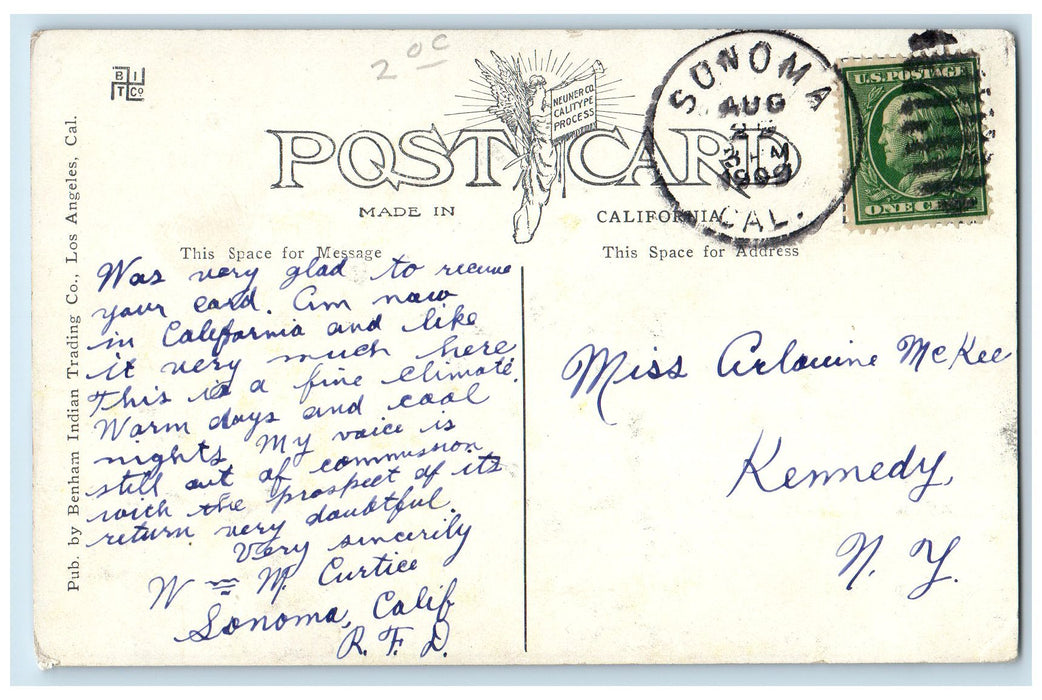 20c
B I
T Co
NEUNER CO.
CALITYPE
PROCESS
POST CARD
MADE IN CALIFORNIA
SONOMA
AUG
3 PM
1909
CAL.
U.S. POSTAGE
ONE CENT
Pub. by Benham Indian Trading Co., Los Angeles, Cal.
This Space for Message
Was very glad to receive
your card. Am now
in California and like
it very much here
This is a fine climate.
Warm days and cool
nights. My voice is
still out of commission
with the prospect of its
return very doubtful.
Very sincerily
W M. Curtice
Sonoma, Calif
R. F. D.
This Space for Address
Miss Arlouine McKee
Kennedy,
N. Y.